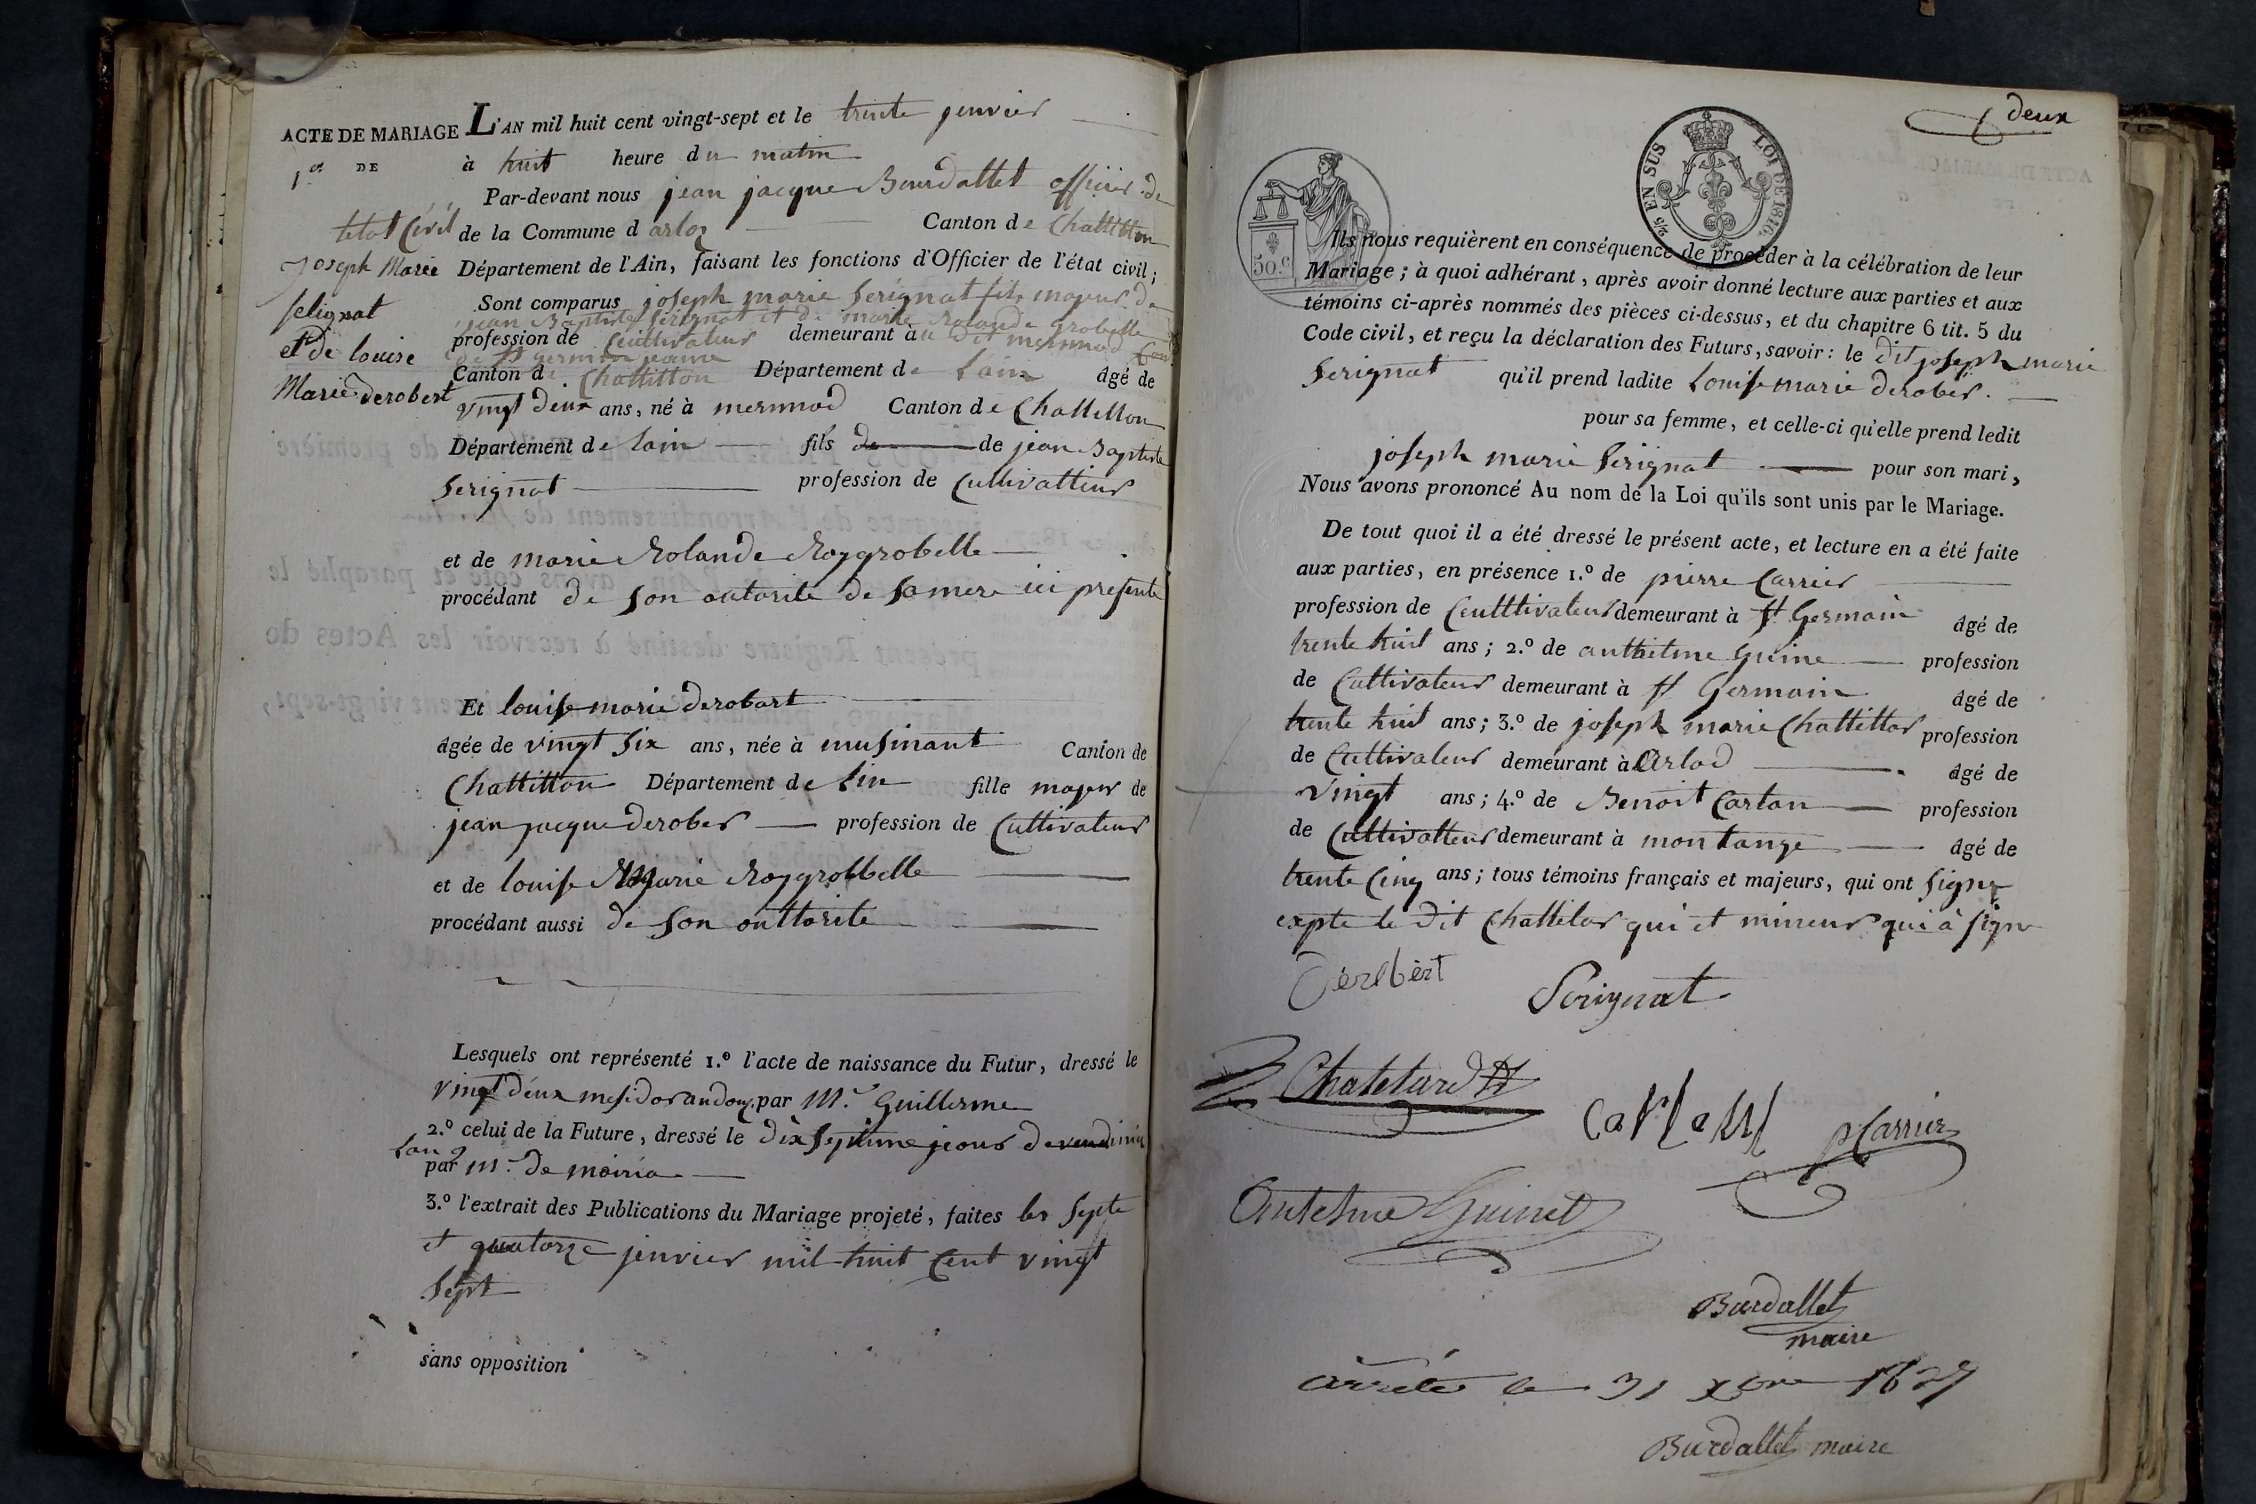 ACTE DE MARIAGE
1.er DE
Joseph Marie
Selignat
et de louise
Marie derobert
L'AN mil huit cent vingt-sept et le trente jenvier
à huit heure du matin
Par-devant nous jean jacque Bourdallet officier de
letat Civil de la Commune d arlos Canton de Chattillon
Département de l'Ain, faisant les fonctions d'Officier de l'état civil;
Sont comparus joseph marie Serignat fils majeur de
jean Baptiste Serignat et de marie rolande grobelle
profession de Ceultivateur demeurant à
Canton de Chattillon Département de Lain âgé de
vingt deux ans, né à mernnod Canton de Chattillon
Département de lain fils de de jean Baptiste
Serignat profession de Cultivatteur
et de marie Rolande Roygrobelle
procédant de son outorite de sa mere ici presente
Et louise marie derobart
âgée de vingt six ans, née à musinant Canton de
Chattillon Département de Lin fille mageur de
jean jacque derober profession de Cultivateur
et de louise Marie Roygrobbelle
procédant aussi de son outtorite
Lesquels ont représenté 1.º l'acte de naissance du Futur, dressé le
vingt deux mesidor an douz par M.r Guillerme
2.º celui de la Future, dressé le dix septieme jeour de vendimia
Lan 9
par M.r de moiria
3.º l'extrait des Publications du Mariage projeté, faites les septe
et quatorze jenvier mil huit Cent vingt
Sept
sans opposition
deux
2/5 EN SUS
LOI DE 1816.
50.c
Ils nous requièrent en conséquence de procéder à la célébration de leur
Mariage; à quoi adhérant, après avoir donné lecture aux parties et aux
témoins ci-après nommés des pièces ci-dessus, et du chapitre 6 tit. 5 du
Code civil, et reçu la déclaration des Futurs, savoir: le dit joseph marie
Serignat qu'il prend ladite Louise marie derober.
pour sa femme, et celle-ci qu'elle prend ledit
joseph marie Serignat pour son mari,
Nous avons prononcé Au nom de la Loi qu'ils sont unis par le Mariage.
De tout quoi il a été dressé le présent acte, et lecture en a été faite
aux parties, en présence 1.º de pierre Carrier
profession de Ceulttivateur demeurant à St Germain âgé de
trente huit ans; 2.º de anthetme Guine profession
de Cultivateur demeurant à St Germain âgé de
trente huit ans; 3.º de joseph marie Chattillar profession
de Cultivateur demeurant à Arlod âgé de
vingt ans; 4.º de Benoit Cartan profession
de Cultivatteur demeurant à montange âgé de
trente Cinq ans; tous témoins français et majeurs, qui ont signe
expte le dit Chattilar qui et mineur qui à sign
Derlbért
Serignat
Chatelard
P Carrier
Antelme Guinet
Burdallet
maire
arreté le 31 xbre 1827
Burdallet maire